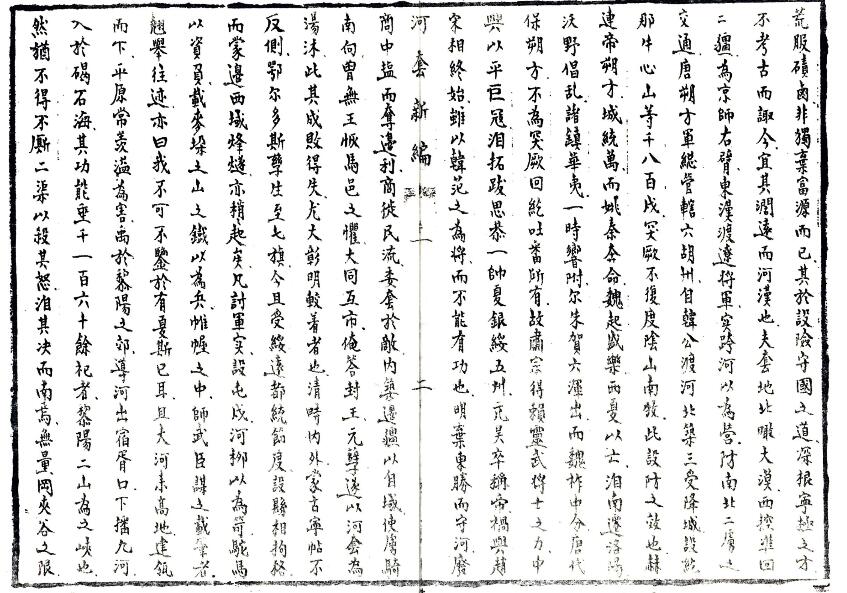 荒服磧鹵非獨棄富源而已其於設險守國之道深根寧極之才
不考古而諏今宜其濶遠而河漢也夫套地北瞰大漠西控準回
二疆為京師右臂東漢渡遼將軍實跨河以為營防南北二虜之
交通唐朔方軍總管轄六胡州自韓公渡河北築三受降城設
那牛心山等千八百戍突厥不復度陰山南牧此設防之效也赫
連帝朔方城統萬而姚秦奔命魏起盛樂西夏以亡洎南遷
沃野倡乱諸鎮華夷一時響附尔朱賀六渾出而魏祚中分唐代
保朔方不為突厥回紇吐番所有故肅宗得賴靈武將士之力中
興以平巨寇洎拓跋思恭一帥夏銀綏五州元昊卒稱帝禍與趙
宋相終始雖以韓范之為將而不能有功也明棄東勝而守河廢
河套新編 二
商中塩而奪邊利商徙民流委套於敵內築邊疆以自域使虜騎
南向曾無王恢馬邑之懼大同互市俺答封王元孽遂以河套為
湯沐此其成敗得失尤大彰明較著者也清時內外蒙古寧帖不
反側鄂尔多斯孳生至七旗今且受綏遠都統節度設縣相拘格
而蒙邊西域烽燧亦稍起矣凡討軍實設屯戍河柳以為笴駝馬
以資負載麥垛之山之鐵以為兵帷幄之中師武臣謀之戴筆者
翹舉往迹亦曰我不可不鑒於有夏斯已耳且大河素高地建瓴
而下平原常羨溢為害禹於黎陽之郊導河出宿胥口下播九河
入於碣石海其功能垂千一百六十餘祀者黎陽二山為之峽也
然猶不得不廝二渠以殺其怒洎其決而南焉無量岡夾谷之限